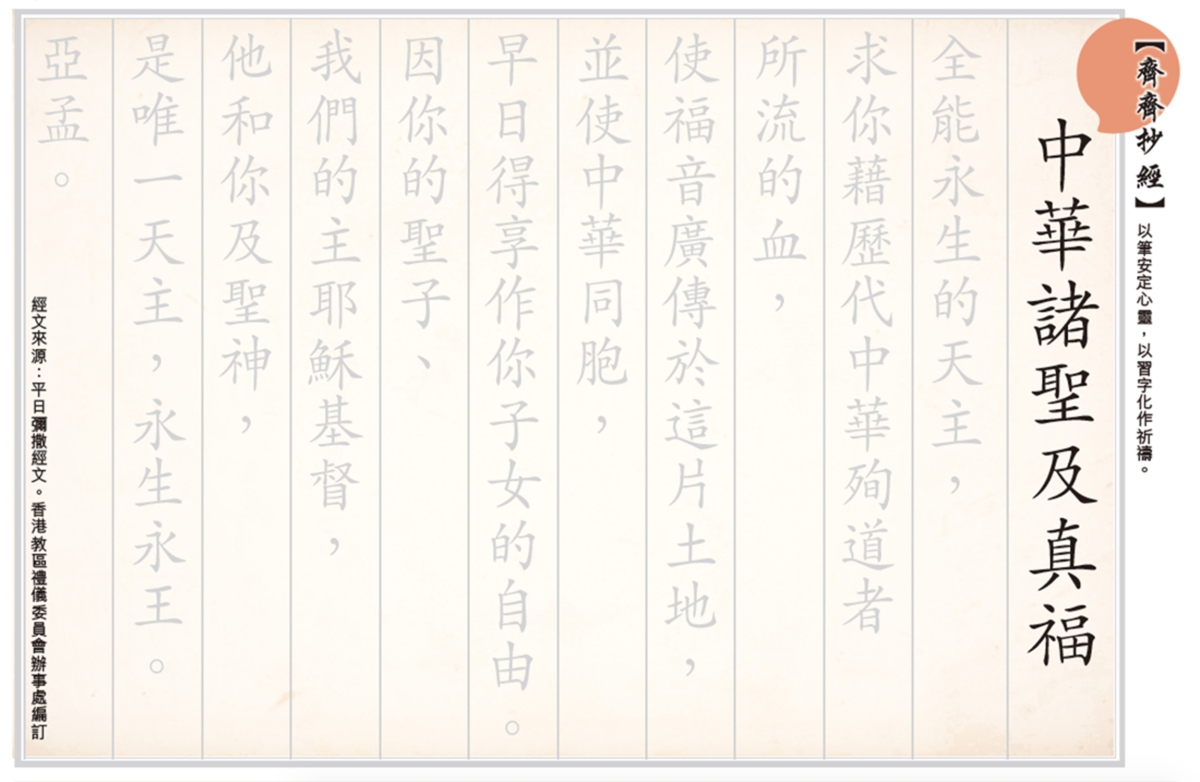 【齊齊抄經】 以筆安定心靈，以習字化作祈禱。
中華諸聖及真福
全能永生的天主，
求你藉歷代中華殉道者
所流的血，
使福音廣傳於這片土地，
並使中華同胞，
早日得享作你子女的自由。
因你的聖子、
我們的主耶穌基督，
他和你及聖神，
是唯一天主，永生永王。
亞孟。
經文來源：平日彌撒經文。香港教區禮儀委員會辦事處編訂